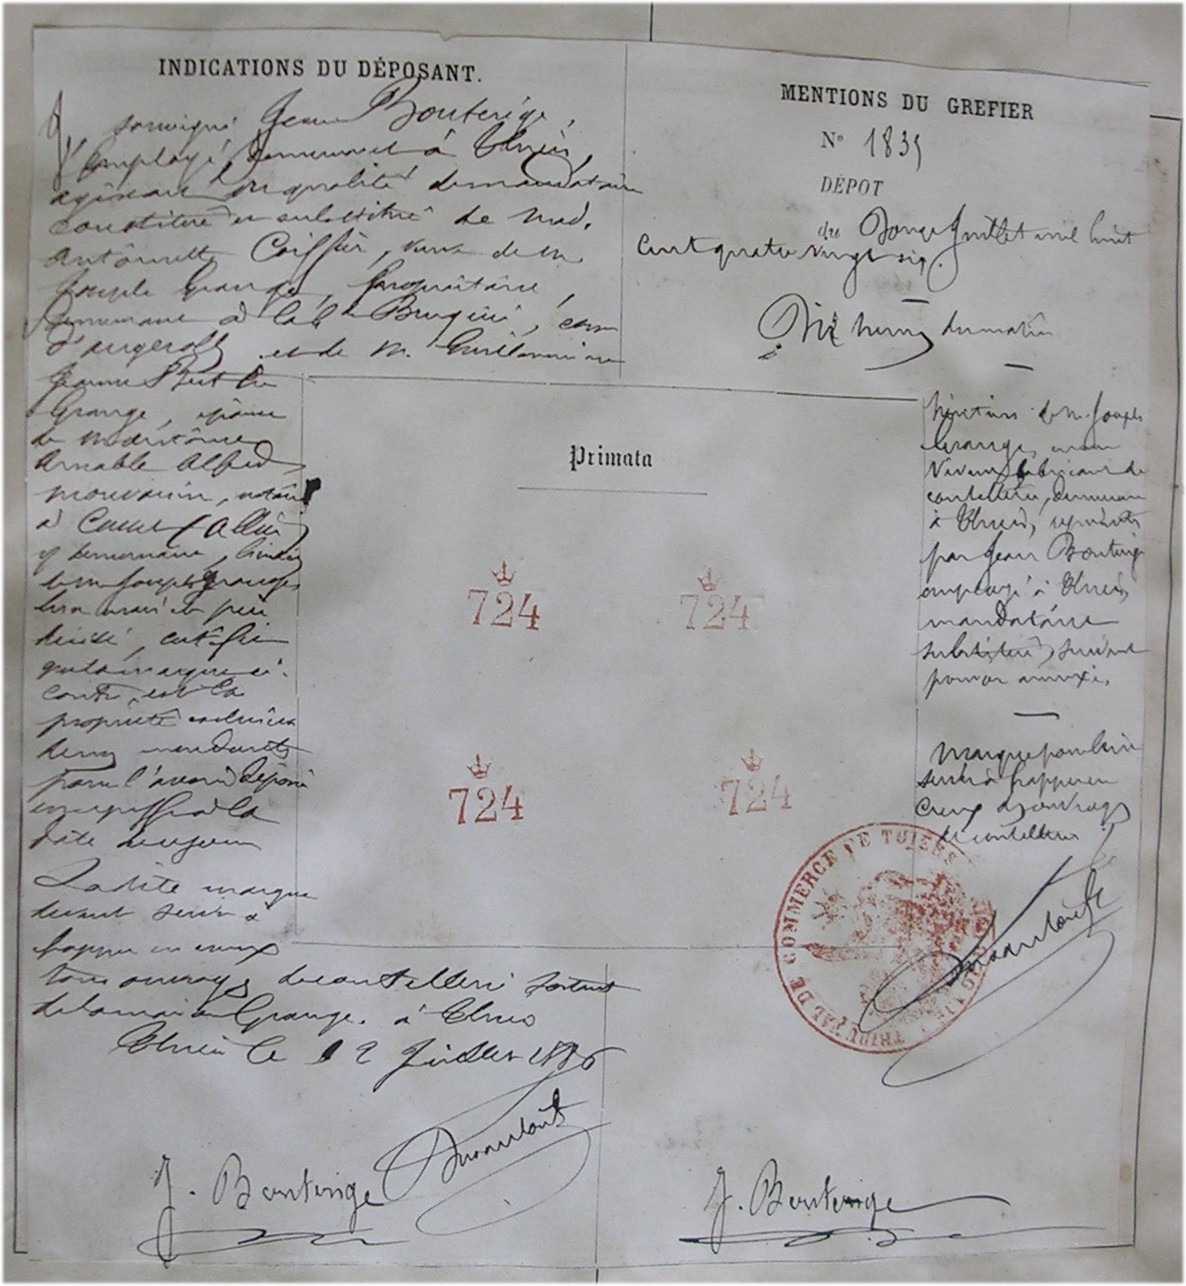 INDICATIONS DU DÉPOSANT.
Je soussigné Jean Bouterige,
employé, demeurant à Thiers,
agissant en qualité de mandataire
constitué et substitué de Mad.
Antoinette Coiffier, veuve de M.
Joseph Grange, propriétaire,
demeurant à la Brugière, com
et de M. Guillaumine
Jeanne
Grange, épouse
de M.
Amable Alfred
notaire
à Cusset (Allier)
y demeurant,
de M. Joseph Grange,
leur mari et père
décédé, certifie
que la marque ci-
contre, est la
propriété exclusive
de mes mandants
pour l'avoir déposée
au greffe à la
date de ce jour
Ladite marque
devant servir à
frapper en creux
tous ouvrages de coutellerie sortant
de la maison Grange, à Thiers
Thiers le 12 Juillet 1886
J. Bouterige
MENTIONS DU GREFIER
N° 1835
DÉPOT
du Douze Juillet mil huit
cent quatre vingt six.
Dix heures du matin
Héritiers de M. Joseph
Grange,
vivant fabricant de
coutellerie, demeurant
à Thiers, représentés
par Jean Bouterige
employé à Thiers,
mandataire
substitué, suivant
pouvoir annexé.
Marque pour
servir à frapper en
creux
de coutellerie
Primata
724 724
724 724
TRIBUNAL DE COMMERCE DE THIERS
J. Bouterige